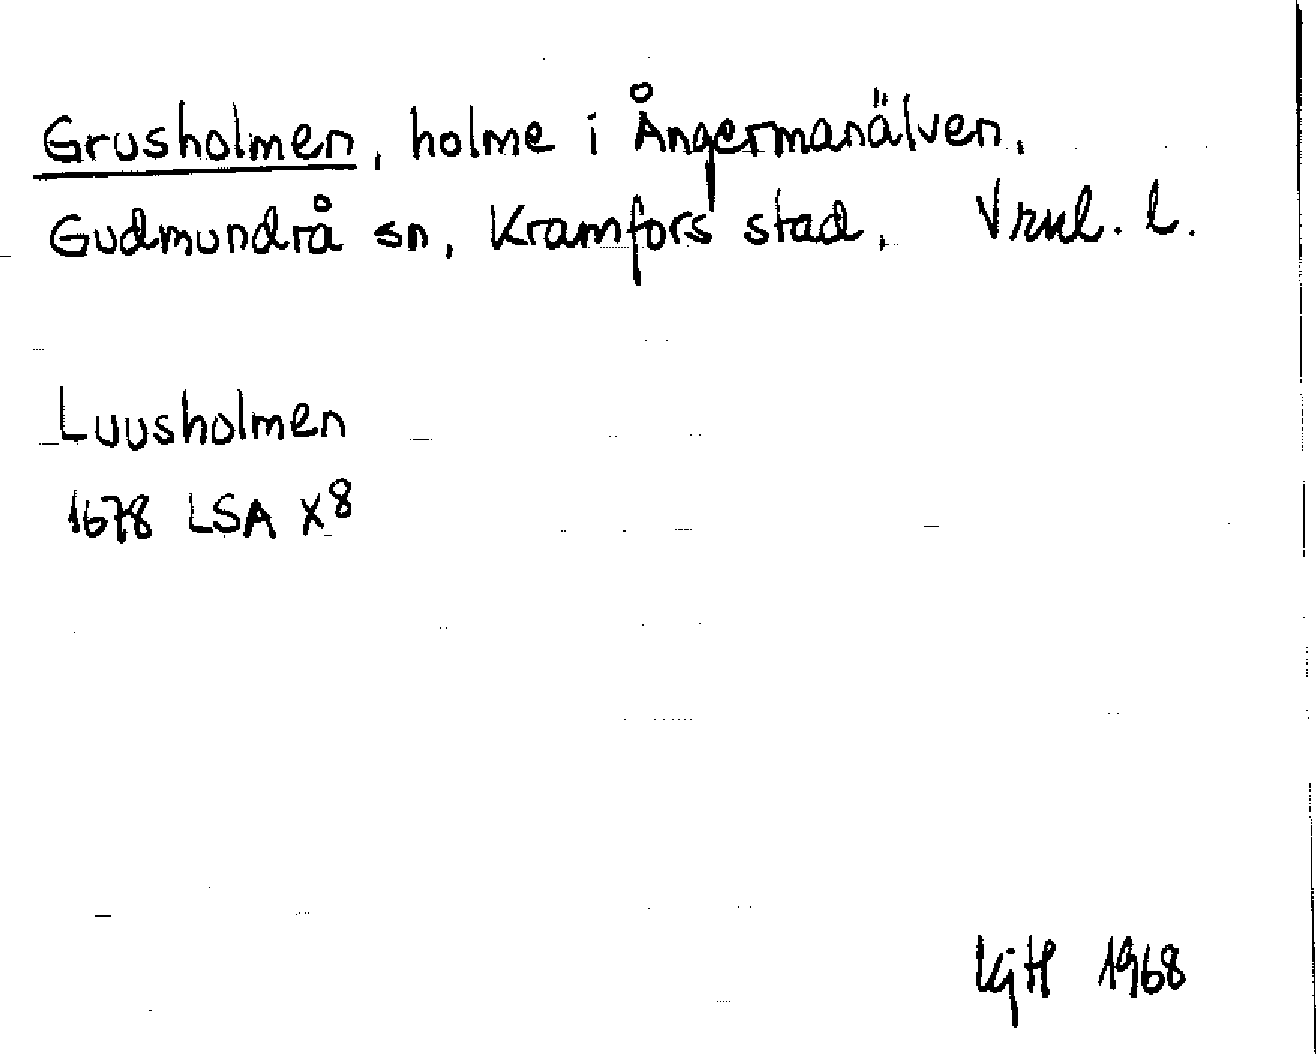 Grusholmen, holme i Ångermanälven.
Gudmundrå sn, Kramfors stad, Vrnl. l.
Luusholmen
1678 LSA X8
KjH 1968